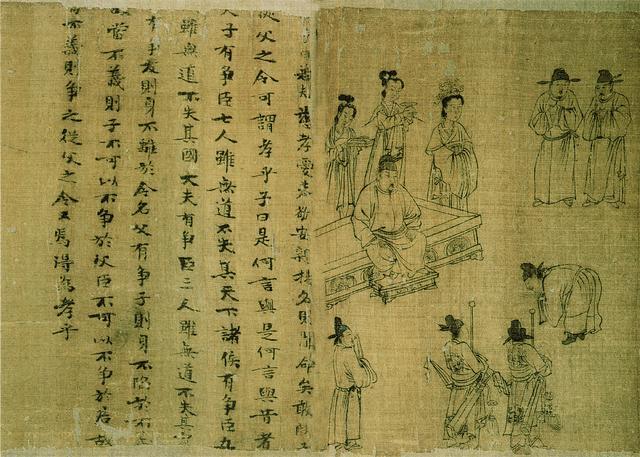 若夫慈孝愛恭敬安親揚名則聞命矣敢問
從父之令可謂孝乎子曰是何言與是何言與昔者
天子有争臣七人雖無道不失其天下諸侯有争臣
雖無道不失其國大夫有争臣三人雖無道不失其家
有争友則身不離於令名父有争子則身不陷於不
故當不義則子不可以不争於父臣不可以不争於君故
當不義則争之從父之令又焉得為孝乎